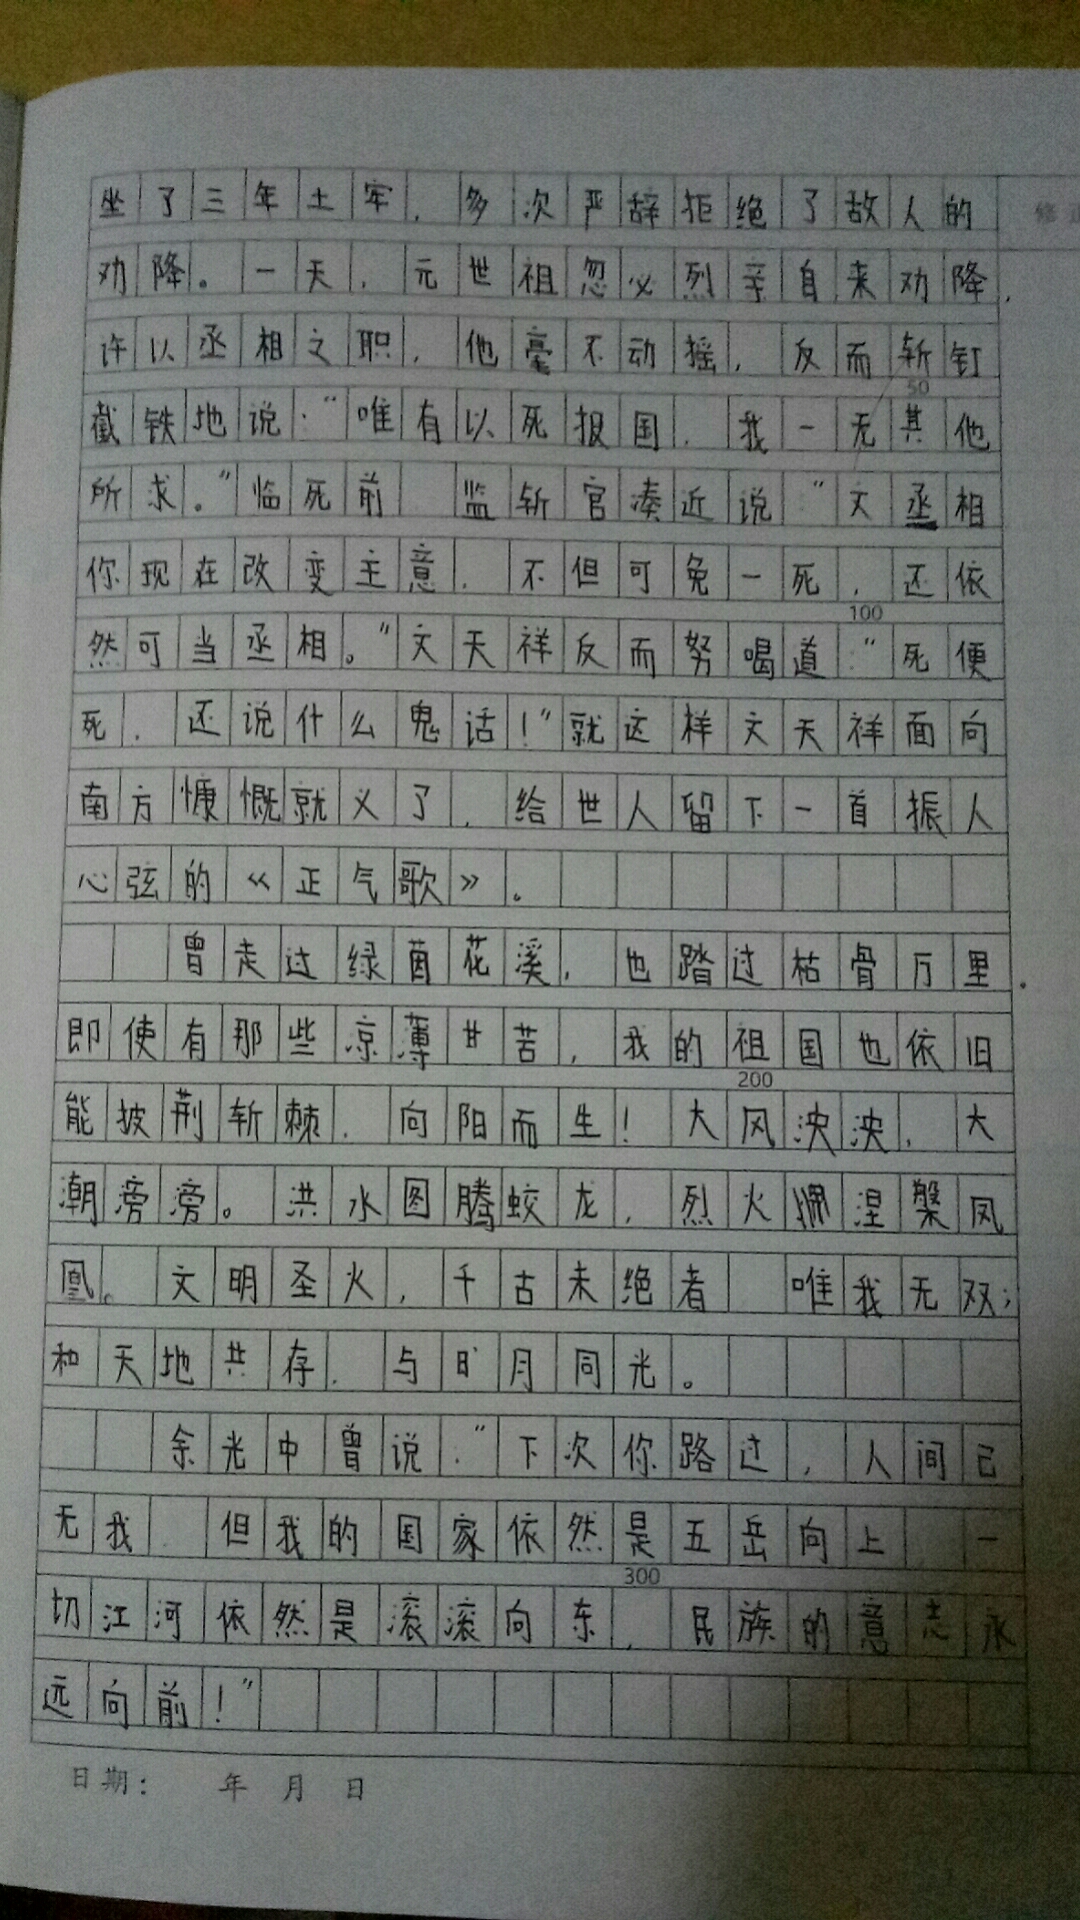 坐了三年土牢，多次严辞拒绝了敌人的
修正
劝降。一天，元世祖忽必烈亲自来劝降，
许以丞相之职，他毫不动摇，反而斩钉
50
截铁地说："唯有以死报国，我一无其他
所求。"临死前 监斩官凑近说："文丞相
你现在改变主意，不但可免一死，还依
100
然可当丞相。"文天祥反而努喝道："死便
死，还说什么鬼话！"就这样文天祥面向
南方慷慨就义了，给世人留下一首振人
心弦的《正气歌》。
曾走过绿茵花溪，也踏过枯骨万里。
即使有那些凉薄甘苦，我的祖国也依旧
200
能披荆斩棘，向阳而生！大风泱泱，大
潮滂滂。洪水图腾蛟龙，烈火涅槃凤
凰。文明圣火，千古未绝者 唯我无双；
和天地共存，与日月同光。
余光中曾说："下次你路过，人间已
无我 但我的国家依然是五岳向上 一
300
切江河依然是滚滚向东，民族的意志永
远向前！"
日期： 年 月 日